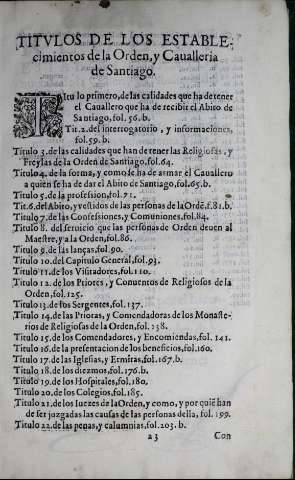 TITVLOS DE LOS ESTABLE-
cimientos de la Orden, y Caualleria
de Santiago.
TItulo primero, de las calidades que ha de tener
el Cauallero que ha de recibir el Abito de
Santiago, fol. 56. b.
Tit. 2. del interrogatorio, y informaciones,
fol. 59. b.
Titulo 3. de las calidades que han de tener las Religiosas, y
Freylas de la Orden de Santiago. fol. 64.
Titulo 4. de la forma, y como se ha de armar el Cauallero
a quien se ha de dar el Abito de Santiago, fol. 65. b.
Titulo 5. de la profession, fol. 71.
Tit. 6. del Abito, y vestidos de las personas de la Ordẽ. f. 81. b.
Titulo 7. de las Confessiones, y Comuniones, fol. 84.
Titulo 8. del seruicio que las personas de Orden deuen al
Maestre, y a la Orden, fol. 86.
Titulo 9. de las lanças, fol. 90.
Titulo 10. del Capitulo General, fol. 93.
Titulo 11. de los Visitadores, fol. 110.
Titulo 12. de los Priores, y Conuentos de Religiosos de la
Orden, fol. 125.
Titulo 13. de los Sergentes, fol. 137.
Titulo 14. de las Prioras, y Comendadoras de los Monaste-
rios de Religiosas de la Orden, fol. 138.
Titulo 15. de los Comendadores, y Encomiendas, fol. 141.
Titulo 16. de la presentacion de los beneficios, fol. 160.
Titulo 17. de las Iglesias, y Ermitas, fol. 167. b.
Titulo 18. de los diezmos, fol. 176. b.
Titulo 19. de los Hospitales, fol. 180.
Titulo 20. de los Colegios, fol. 185.
Titulo 21. de los Iuezes de la Orden, y como, y por quiẽ han
de ser juzgadas las causas de las personas della, fol. 199.
Titulo 22. de las penas, y calumnias, fol. 203. b.
a3 Con